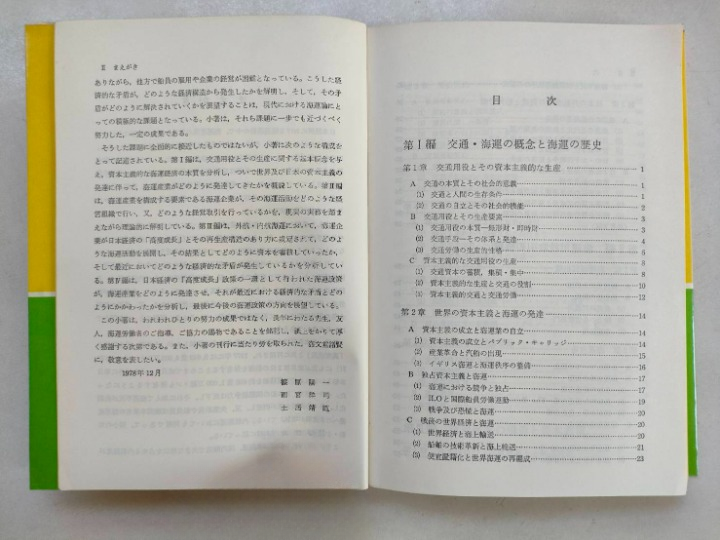 II まえがき
ありながら，他方で船員の雇用や企業の経営が困難となっている。こうした経
済的な矛盾が，どのような経済構造から発生したかを解明し，そして，その矛
盾がどのように解決されていくかを展望することは，現代における海運論にと
っての積極的な課題となっている。小著は，それら課題に一歩でも近づくべく
努力した，一定の成果である。
そうした課題に全面的に接近したものではないが，小著は次のような戦況を
とって記述されている。第Ⅰ編は，交通用役とその生産に関する基本概念を与
え，資本主義的な海運経済の本質を分析し，ついで世界及び日本の資本主義の
発達に伴って，海運産業がどのように発達してきたかを概説している。第Ⅱ編
は，海運産業を構成する要素である海運企業が，その海運活動をどのような経
営組織で行い，又，どのような経営取引を行っているかを，現実の実務を踏ま
えながら理論的に解析している。第Ⅲ編は，外航・内航海運において，海運企
業が日本経済の「高度成長」とその再生産構造のあり方に規定されて，どのよ
うな海運活動を展開し，その結果としてどのように資本を蓄積していったか，
そして最近においてどのような経済的な矛盾が発生しているかを分析してい
る。第Ⅳ編は，日本経済の「高度成長」政策の一環として行われた海運政策
が，海運産業をどのように発達させ，それが最近における経済的な矛盾とどの
ようにかかわったかを分析し，最後に今後の海運政策の方向を展望している。
この小著は，われわれひとりの努力の成果ではなく，長年にわたる先生，友
人，海運労働者のご指導，ご協力の賜物であることを銘記し，誌上をかりて厚く
感謝する次第である。また，小著の刊行に当たり労を取られた，
に，敬意を表したい。
1978年12月
目 次
第Ⅰ編 交通・海運の概念と海運の歴史
第1章 交通用役とその資本主義的な生産 1
A 交通の本質とその社会的意義 1
(1) 交通と人間の生存条件 1
(2) 交通の自立とその社会的機能 2
B 交通用役とその生産要素 3
(1) 交通用役の本質―無形財・即時財 3
(2) 交通手段―その体系と発達 4
(3) 交通労働の生産的性格 6
C 資本主義的な交通用役の生産 8
(1) 交通資本の蓄積，集積・集中 8
(2) 資本主義的な生産と交通の役割 10
(3) 資本主義的な交通と交通労働 12
第2章 世界の資本主義と海運の発達 14
A 資本主義の成立と海運業の自立 14
(1) 資本主義の成立とパブリック・キャリッジ 14
(2) 産業革命と汽船の出現 15
(3) イギリス海運と海運秩序の整備 16
B 独占資本主義と海運 17
(1) 海運における競争と独占 17
(2) ILOと国際船員労働運動 18
(3) 戦争及び恐慌と海運 19
C 戦後の世界経済と海運 20
(1) 世界経済と海上輸送 20
(2) 船舶の技術革新と海上輸送 21
(3) 便宜置籍化と世界海運の再編成 23